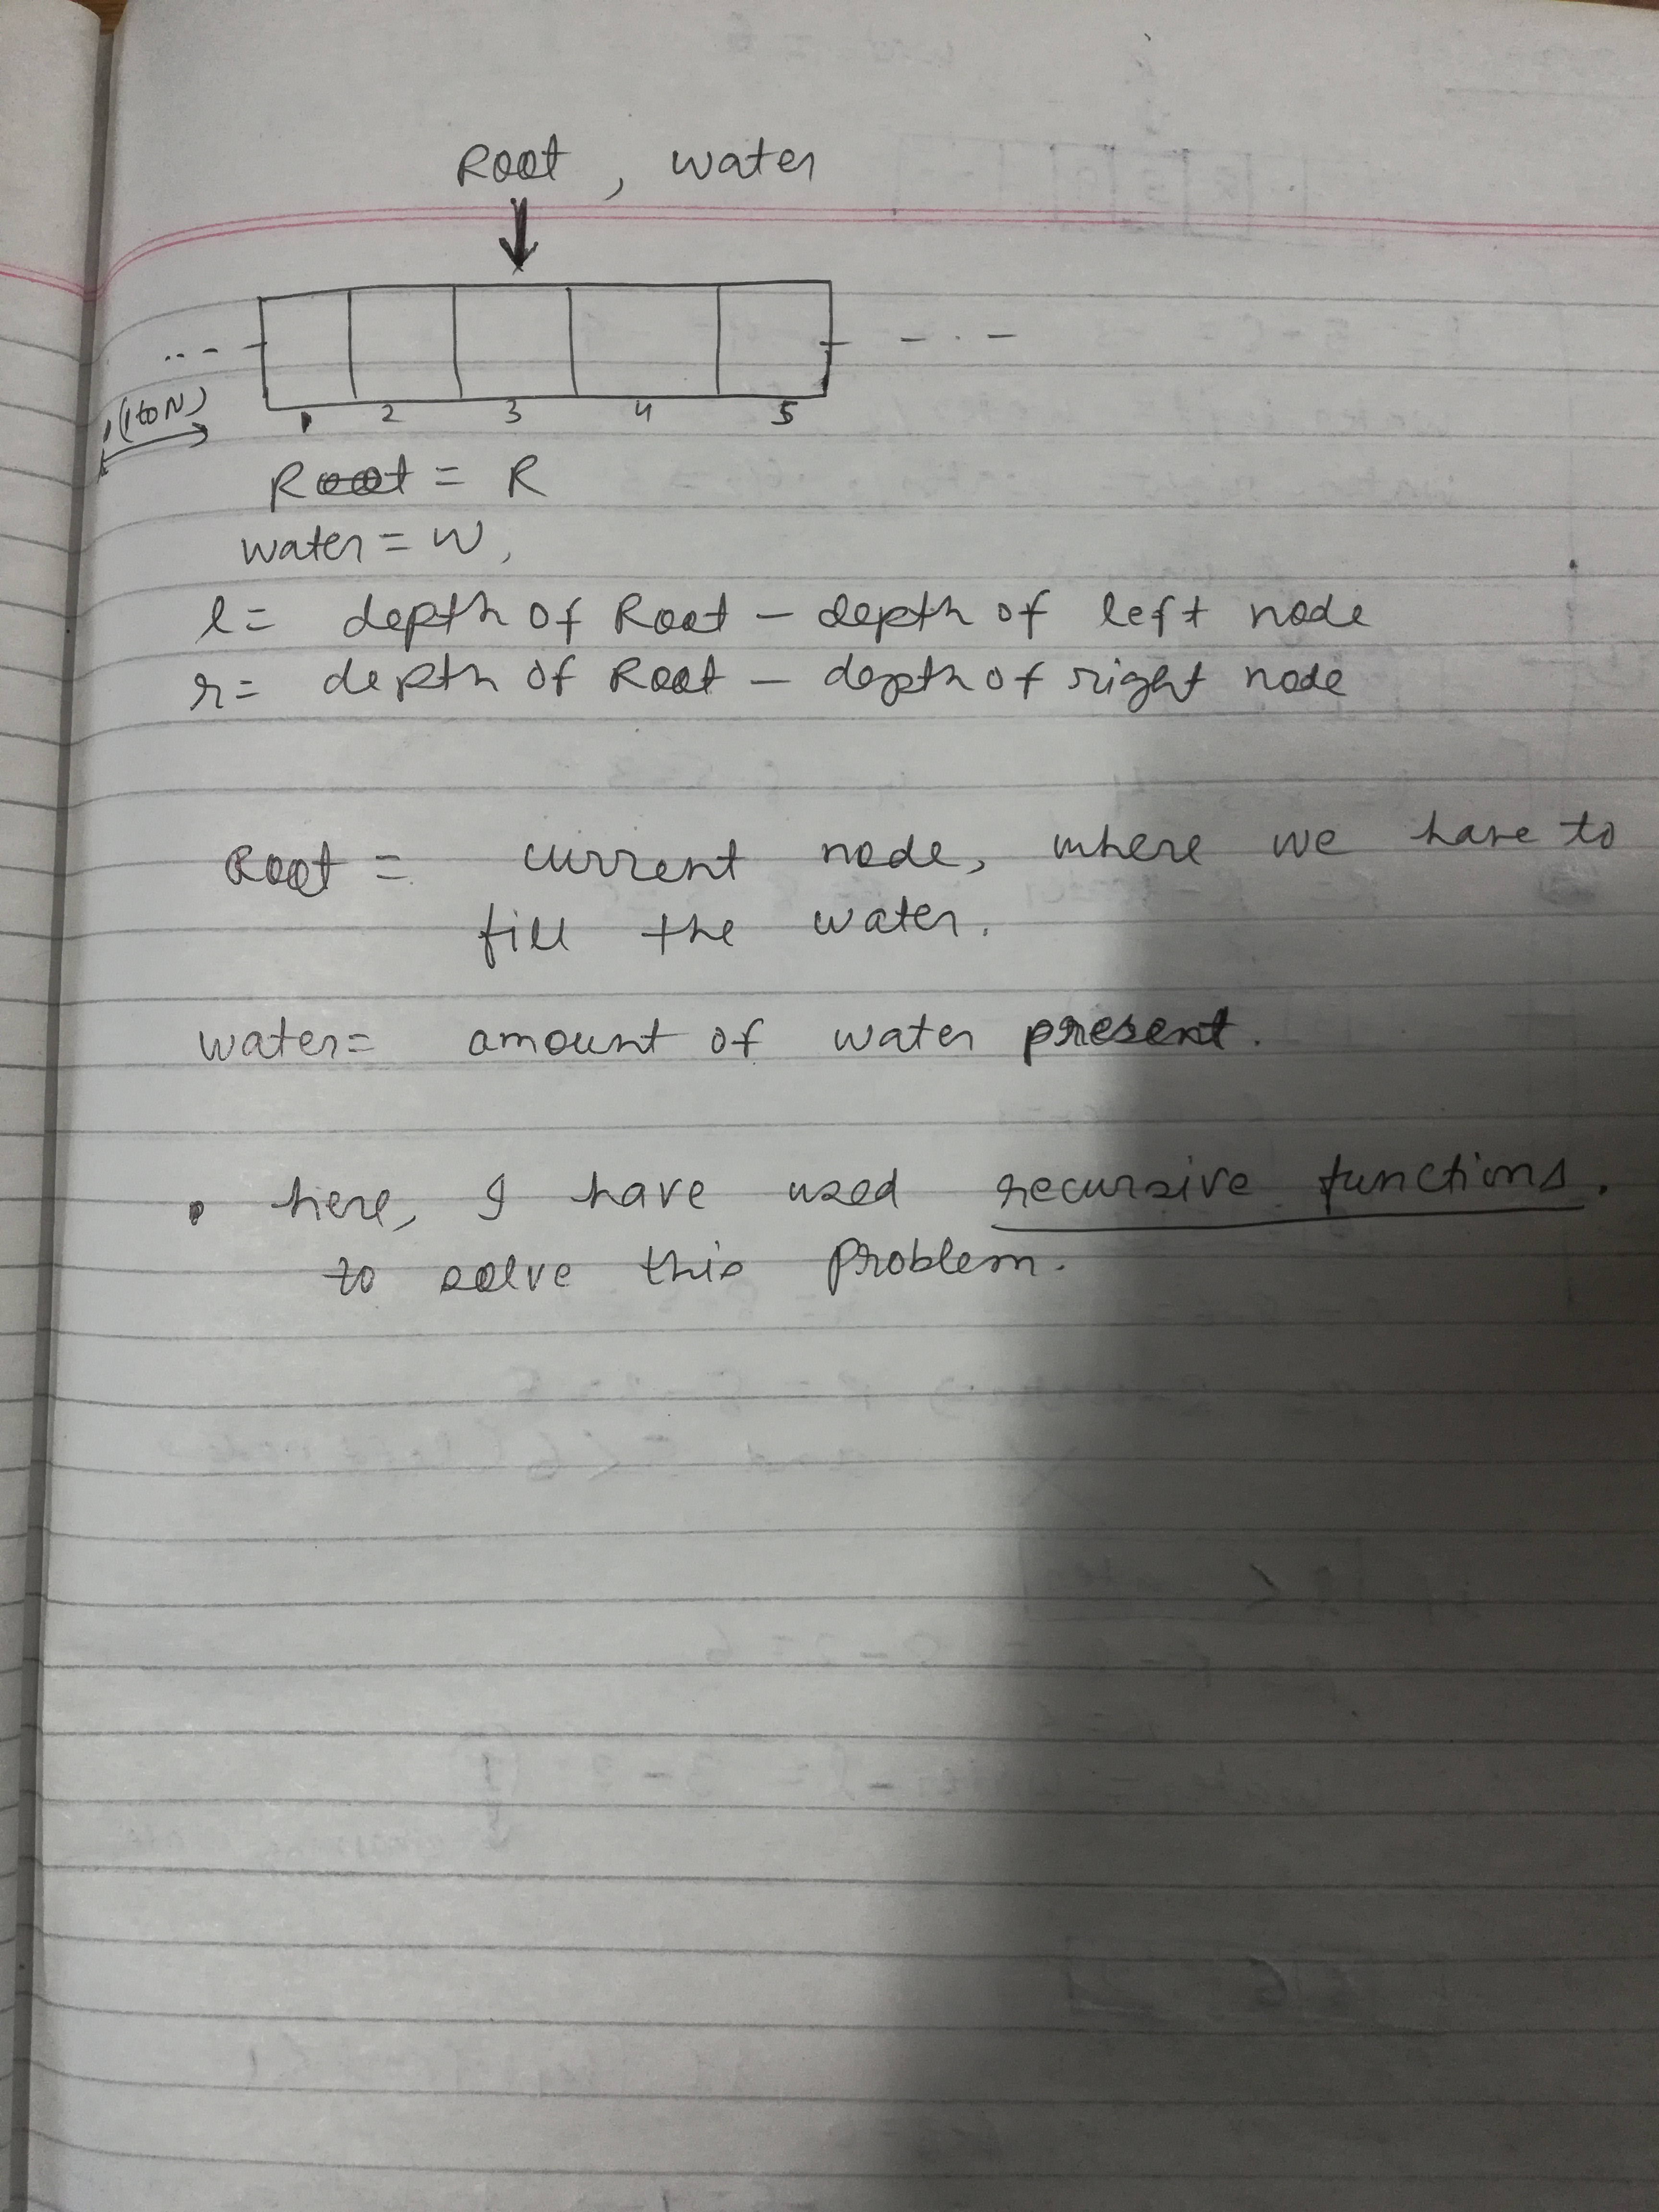 Root , water
(1 to N)
1 2 3 4 5
Root = R
water = W,
l = depth of Root - depth of left node
r = depth of Root - depth of right node
Root = current node, where we have to
fill the water.
water = amount of water present.
• here, I have used recursive functions.
to solve this problem.